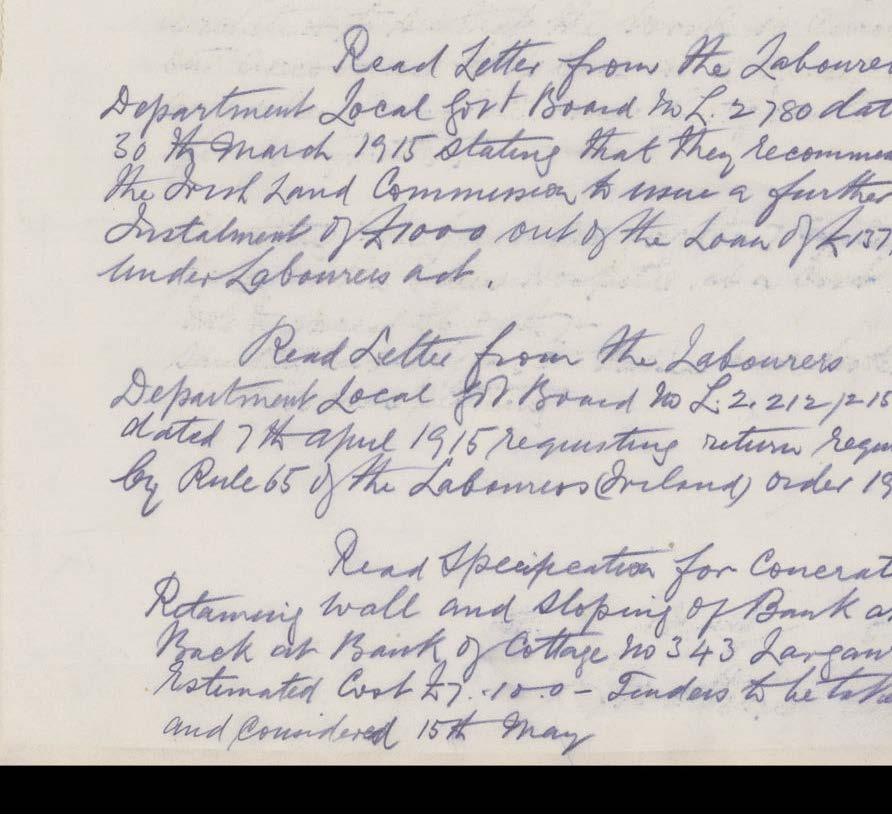 Read Letter from the Laboure
Department Local Govt Board No L. 2780 dat
30th March 1915 stating that they recomme
the Irish Land Commission to issue a further
Instalment of £1000 out of the Loan of £137
under Labourers act.
Read Letter from the Labourers
Department Local Govt Board No L. 2. 212/215
dated 7th April 1915 requesting return requ
by Rule 65 of the Labourers (Ireland) Order 19
Read Specification for Concrat
Retaining wall and sloping of Bank a
Back at Bank of Cottage No 343
Estimated Cost £7.-10.0- Tenders to be tak
and Considered 15th May